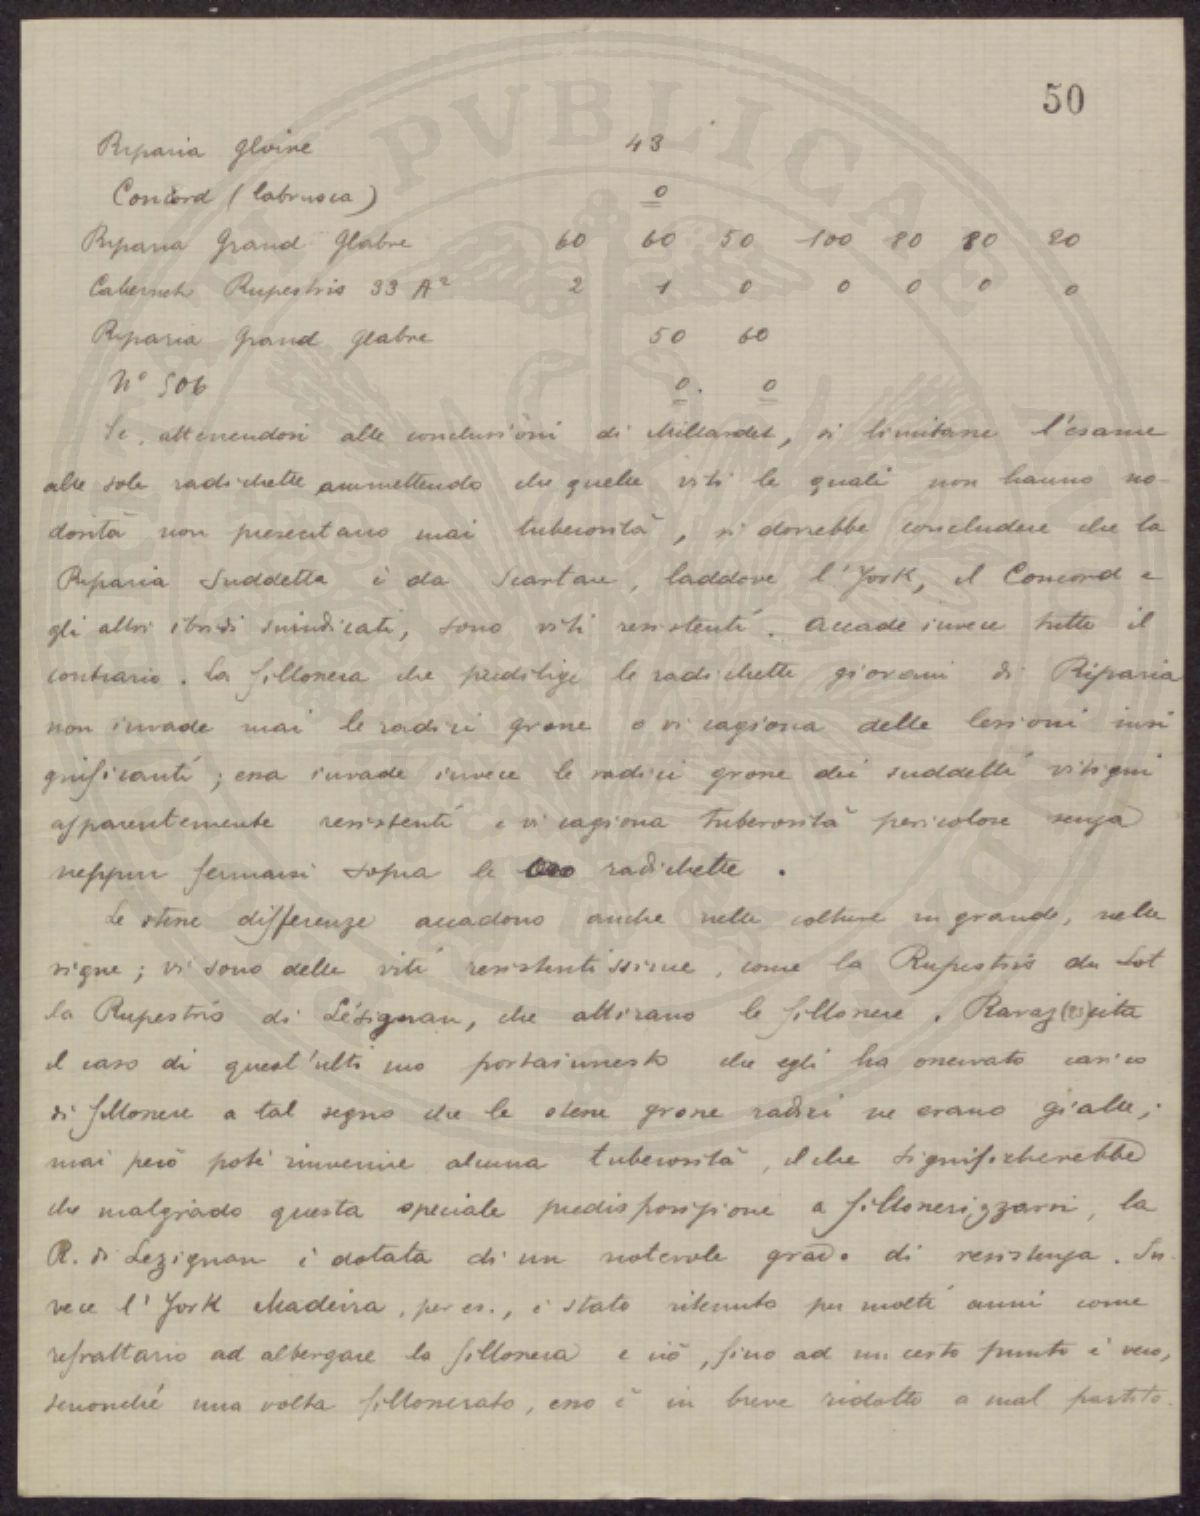 50
Riparia Gloire 43
Concord (labrusca) 0
Riparia Grand Glabre 60 60 50 100 80 80 20
Cabernet Rupestris 33 A² 2 1 0 0 0 0 0
Riparia Grand Glabre 50 60
N° 506 0. 0
Se, attenendosi alle conclusioni di Millardet, si limitasse l'esame
alle sole radichette ammettendo che quelle viti le quali non hanno no-
dosità non presentano mai tuberosità, si dovrebbe concludere che la
Riparia suddetta è da scartare, laddove l'York, il Concord e
gli altri ibridi suindicati, sono viti resistenti. Accade invece tutto il
contrario. La fillossera che predilige le radichette giovani di Riparia
non invade mai le radici grosse o vi cagiona delle lesioni insi
gnificanti; essa invade invece le radici grosse dei suddetti vitigni
apparentemente resistenti e vi cagiona tuberosità pericolose senza
neppur fermarsi sopra le radichette.
Le stesse differenze accadono anche nelle colture in grande, nelle
vigne; vi sono delle viti resistentissime, come la Rupestris du Lot
la Rupestris di Lésignan, che attirano le fillossere. Ravaz (83) cita
il caso di quest'ultimo portainnesto che egli ha osservato carico
di fillossere a tal segno che le stesse grosse radici ne erano gialle;
mai però poté rinvenire alcuna tuberosità, il che significherebbe
che malgrado questa speciale predisposizione a fillosserizzarsi, la
R. di Lezignan è dotata di un notevole grado di resistenza. In-
vece l'York Madeira, per es., è stato ritenuto per molti anni come
refrattario ad albergare la fillossera e ciò, fino ad un certo punto è vero,
senonché una volta fillosserato, esso è in breve ridotto a mal partito.
PVBLICAE